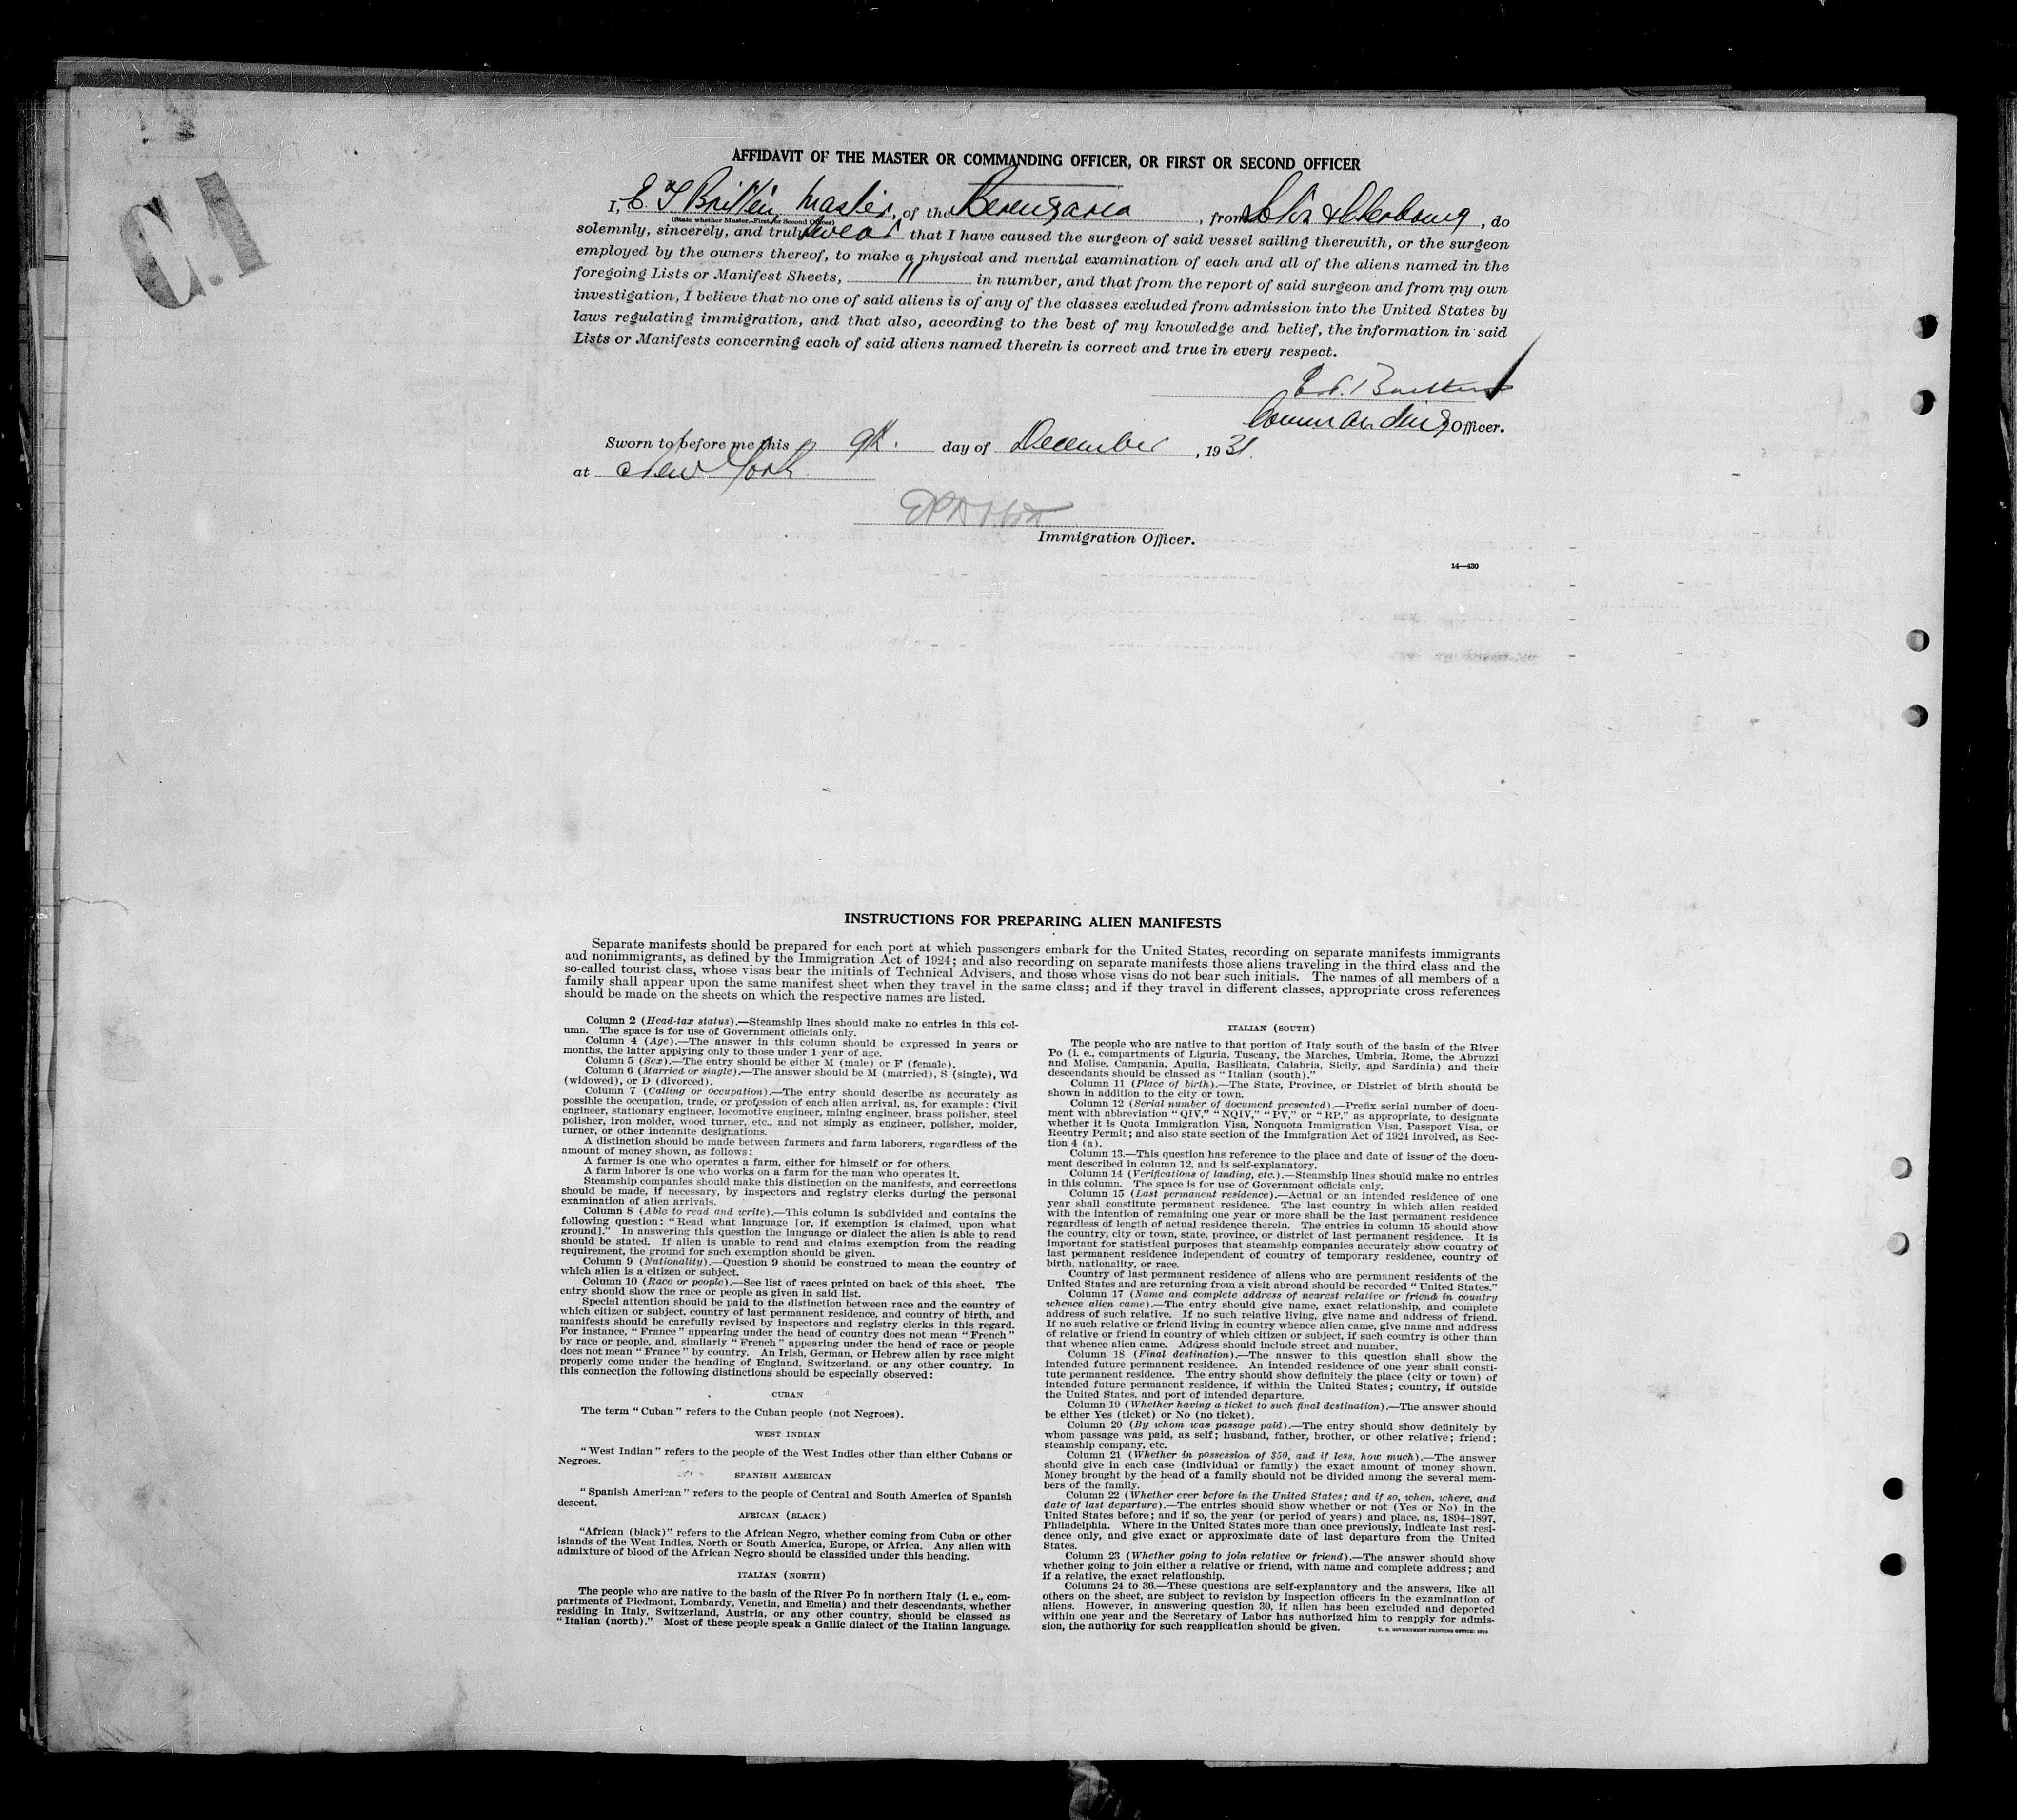 C.1
AFFIDAVIT OF THE MASTER OR COMMANDING OFFICER, OR FIRST OR SECOND OFFICER
I, E. T Britten, Master, of the Berengaria, from Soton & Cherbourg, do
(State whether Master, First, or Second Officer)
solemnly, sincerely, and truly swear that I have caused the surgeon of said vessel sailing therewith, or the surgeon
employed by the owners thereof, to make a physical and mental examination of each and all of the aliens named in the
foregoing Lists or Manifest Sheets, 11 in number, and that from the report of said surgeon and from my own
investigation, I believe that no one of said aliens is of any of the classes excluded from admission into the United States by
laws regulating immigration, and that also, according to the best of my knowledge and belief, the information in said
Lists or Manifests concerning each of said aliens named therein is correct and true in every respect.
E.T. Britten
Commanding Officer.
Sworn to before me this 9th. day of December, 1931.
at New York
Immigration Officer.
14—430
INSTRUCTIONS FOR PREPARING ALIEN MANIFESTS
Separate manifests should be prepared for each port at which passengers embark for the United States, recording on separate manifests immigrants
and nonimmigrants, as defined by the Immigration Act of 1924; and also recording on separate manifests those aliens traveling in the third class and the
so-called tourist class, whose visas bear the initials of Technical Advisers, and those whose visas do not bear such initials. The names of all members of a
family shall appear upon the same manifest sheet when they travel in the same class; and if they travel in different classes, appropriate cross references
should be made on the sheets on which the respective names are listed.
Column 2 (Head-tax status).—Steamship lines should make no entries in this col-
umn. The space is for use of Government officials only.
Column 4 (Age).—The answer in this column should be expressed in years or
months, the latter applying only to those under 1 year of age.
Column 5 (Sex).—The entry should be either M (male) or F (female).
Column 6 (Married or single).—The answer should be M (married), S (single), Wd
(widowed), or D (divorced).
Column 7 (Calling or occupation).—The entry should describe as accurately as
possible the occupation, trade, or profession of each alien arrival, as, for example: Civil
engineer, stationary engineer, locomotive engineer, mining engineer, brass polisher, steel
polisher, iron molder, wood turner, etc., and not simply as engineer, polisher, molder,
turner, or other indefinite designations.
A distinction should be made between farmers and farm laborers, regardless of the
amount of money shown, as follows:
A farmer is one who operates a farm, either for himself or for others.
A farm laborer is one who works on a farm for the man who operates it.
Steamship companies should make this distinction on the manifests, and corrections
should be made, if necessary, by inspectors and registry clerks during the personal
examination of alien arrivals.
Column 8 (Able to read and write).—This column is subdivided and contains the
following question: "Read what language [or, if exemption is claimed, upon what
ground]." In answering this question the language or dialect the alien is able to read
should be stated. If alien is unable to read and claims exemption from the reading
requirement, the ground for such exemption should be given.
Column 9 (Nationality).—Question 9 should be construed to mean the country of
which alien is a citizen or subject.
Column 10 (Race or people).—See list of races printed on back of this sheet. The
entry should show the race or people as given in said list.
Special attention should be paid to the distinction between race and the country of
which citizen or subject, country of last permanent residence, and country of birth, and
manifests should be carefully revised by inspectors and registry clerks in this regard.
For instance, "France" appearing under the head of country does not mean "French"
by race or people, and, similarly "French" appearing under the head of race or people
does not mean "France" by country. An Irish, German, or Hebrew alien by race might
properly come under the heading of England, Switzerland, or any other country. In
this connection the following distinctions should be especially observed:
CUBAN
The term "Cuban" refers to the Cuban people (not Negroes).
WEST INDIAN
"West Indian" refers to the people of the West Indies other than either Cubans or
Negroes.
SPANISH AMERICAN
"Spanish American" refers to the people of Central and South America of Spanish
descent.
AFRICAN (BLACK)
"African (black)" refers to the African Negro, whether coming from Cuba or other
islands of the West Indies, North or South America, Europe, or Africa. Any alien with
admixture of blood of the African Negro should be classified under this heading.
ITALIAN (NORTH)
The people who are native to the basin of the River Po in northern Italy (i. e., com-
partments of Piedmont, Lombardy, Venetia, and Emelia) and their descendants, whether
residing in Italy, Switzerland, Austria, or any other country, should be classed as
"Italian (north)." Most of these people speak a Gallic dialect of the Italian language.
ITALIAN (SOUTH)
The people who are native to that portion of Italy south of the basin of the River
Po (i. e., compartments of Liguria, Tuscany, the Marches, Umbria, Rome, the Abruzzi
and Molise, Campania, Apulia, Basilicata, Calabria, Sicily, and Sardinia) and their
descendants should be classed as "Italian (south)."
Column 11 (Place of birth).—The State, Province, or District of birth should be
shown in addition to the city or town.
Column 12 (Serial number of document presented).—Prefix serial number of docu-
ment with abbreviation "QIV," "NQIV," "PV," or "RP," as appropriate, to designate
whether it is Quota Immigration Visa, Nonquota Immigration Visa, Passport Visa, or
Reentry Permit; and also state section of the Immigration Act of 1924 involved, as Sec-
tion 4 (a).
Column 13.—This question has reference to the place and date of issue of the docu-
ment described in column 12, and is self-explanatory.
Column 14 (Verifications of landing, etc.).—Steamship lines should make no entries
in this column. The space is for use of Government officials only.
Column 15 (Last permanent residence).—Actual or an intended residence of one
year shall constitute permanent residence. The last country in which alien resided
with the intention of remaining one year or more shall be the last permanent residence
regardless of length of actual residence therein. The entries in column 15 should show
the country, city or town, state, province, or district of last permanent residence. It is
important for statistical purposes that steamship companies accurately show country of
last permanent residence independent of country of temporary residence, country of
birth, nationality, or race.
Country of last permanent residence of aliens who are permanent residents of the
United States and are returning from a visit abroad should be recorded "United States."
Column 17 (Name and complete address of nearest relative or friend in country
whence alien came).—The entry should give name, exact relationship, and complete
address of such relative. If no such relative living, give name and address of friend.
If no such relative or friend living in country whence alien came, give name and address
of relative or friend in country of which citizen or subject, if such country is other than
that whence alien came. Address should include street and number.
Column 18 (Final destination).—The answer to this question shall show the
intended future permanent residence. An intended residence of one year shall consti-
tute permanent residence. The entry should show definitely the place (city or town) of
intended future permanent residence, if within the United States; country, if outside
the United States, and port of intended departure.
Column 19 (Whether having a ticket to such final destination).—The answer should
be either Yes (ticket) or No (no ticket).
Column 20 (By whom was passage paid).—The entry should show definitely by
whom passage was paid, as self; husband, father, brother, or other relative; friend;
steamship company, etc.
Column 21 (Whether in possession of $50, and if less, how much).—The answer
should give in each case (individual or family) the exact amount of money shown.
Money brought by the head of a family should not be divided among the several mem-
bers of the family.
Column 22 (Whether ever before in the United States; and if so, when, where, and
date of last departure).—The entries should show whether or not (Yes or No) in the
United States before; and if so, the year (or period of years) and place, as, 1894–1897,
Philadelphia. Where in the United States more than once previously, indicate last resi-
dence only, and give exact or approximate date of last departure from the United
States.
Column 23 (Whether going to join relative or friend).—The answer should show
whether going to join either a relative or friend, with name and complete address; and
if a relative, the exact relationship.
Columns 24 to 36.—These questions are self-explanatory and the answers, like all
others on the sheet, are subject to revision by inspection officers in the examination of
aliens. However, in answering question 30, if alien has been excluded and deported
within one year and the Secretary of Labor has authorized him to reapply for admis-
sion, the authority for such reapplication should be given.
U. S. GOVERNMENT PRINTING OFFICE: